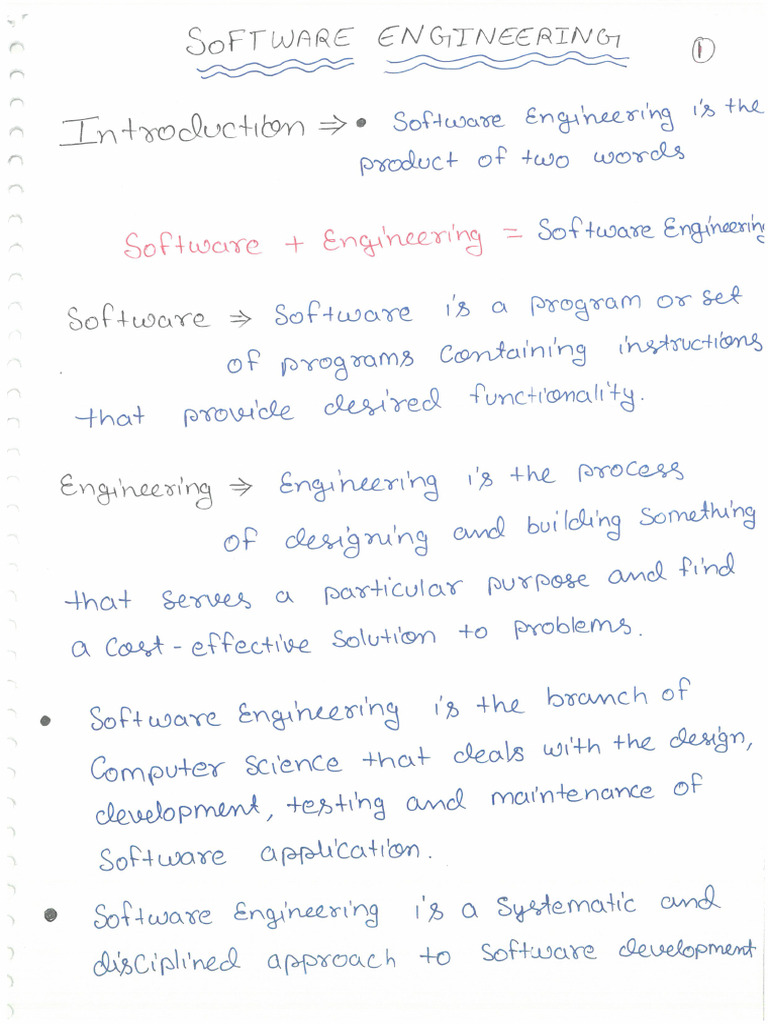 SOFTWARE ENGINEERING 1
Introduction ⇒ • Software Engineering is the
product of two words
Software + Engineering = Software Engineering
Software ⇒ Software is a program or set
of programs containing instructions
that provide desired functionality.
Engineering ⇒ Engineering is the process
of designing and building something
that serves a particular purpose and find
a cost-effective solution to problems.
• Software Engineering is the branch of
Computer science that deals with the design,
development, testing and maintenance of
software application.
• Software Engineering is a systematic and
disciplined approach to software development